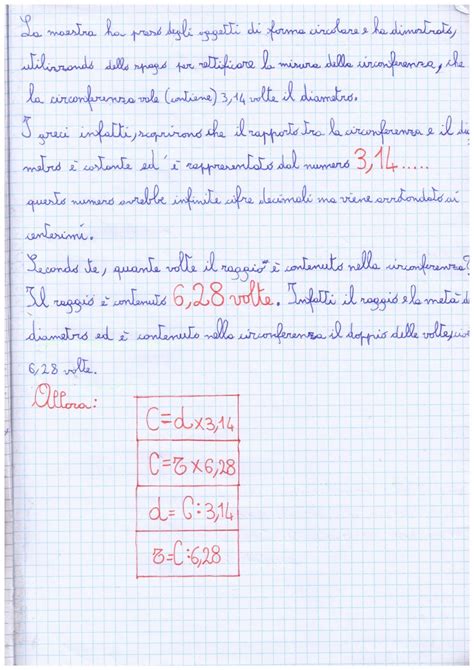 La maestra ha preso degli oggetti di forma circolare e ha dimostrato,
utilizzando dello spago per rettificare la misura della circonferenza, che
la circonferenza vale (contiene) 3,14 volte il diametro.
I greci infatti, scoprirono che il rapporto tra la circonferenza e il dia
metro è costante ed è rappresentato dal numero 3,14.....
questo numero avrebbe infinite cifre decimali ma viene arrotondato ai
centesimi.
Secondo te, quante volte il raggio è contenuto nella circonferenza?
Il raggio è contenuto 6,28 volte. Infatti il raggio è la metà d
diametro ed è contenuto nella circonferenza il doppio delle volte, cioè
6,28 volte.
Allora:
C=d×3,14
C=r×6,28
d=C:3,14
r=C:6,28